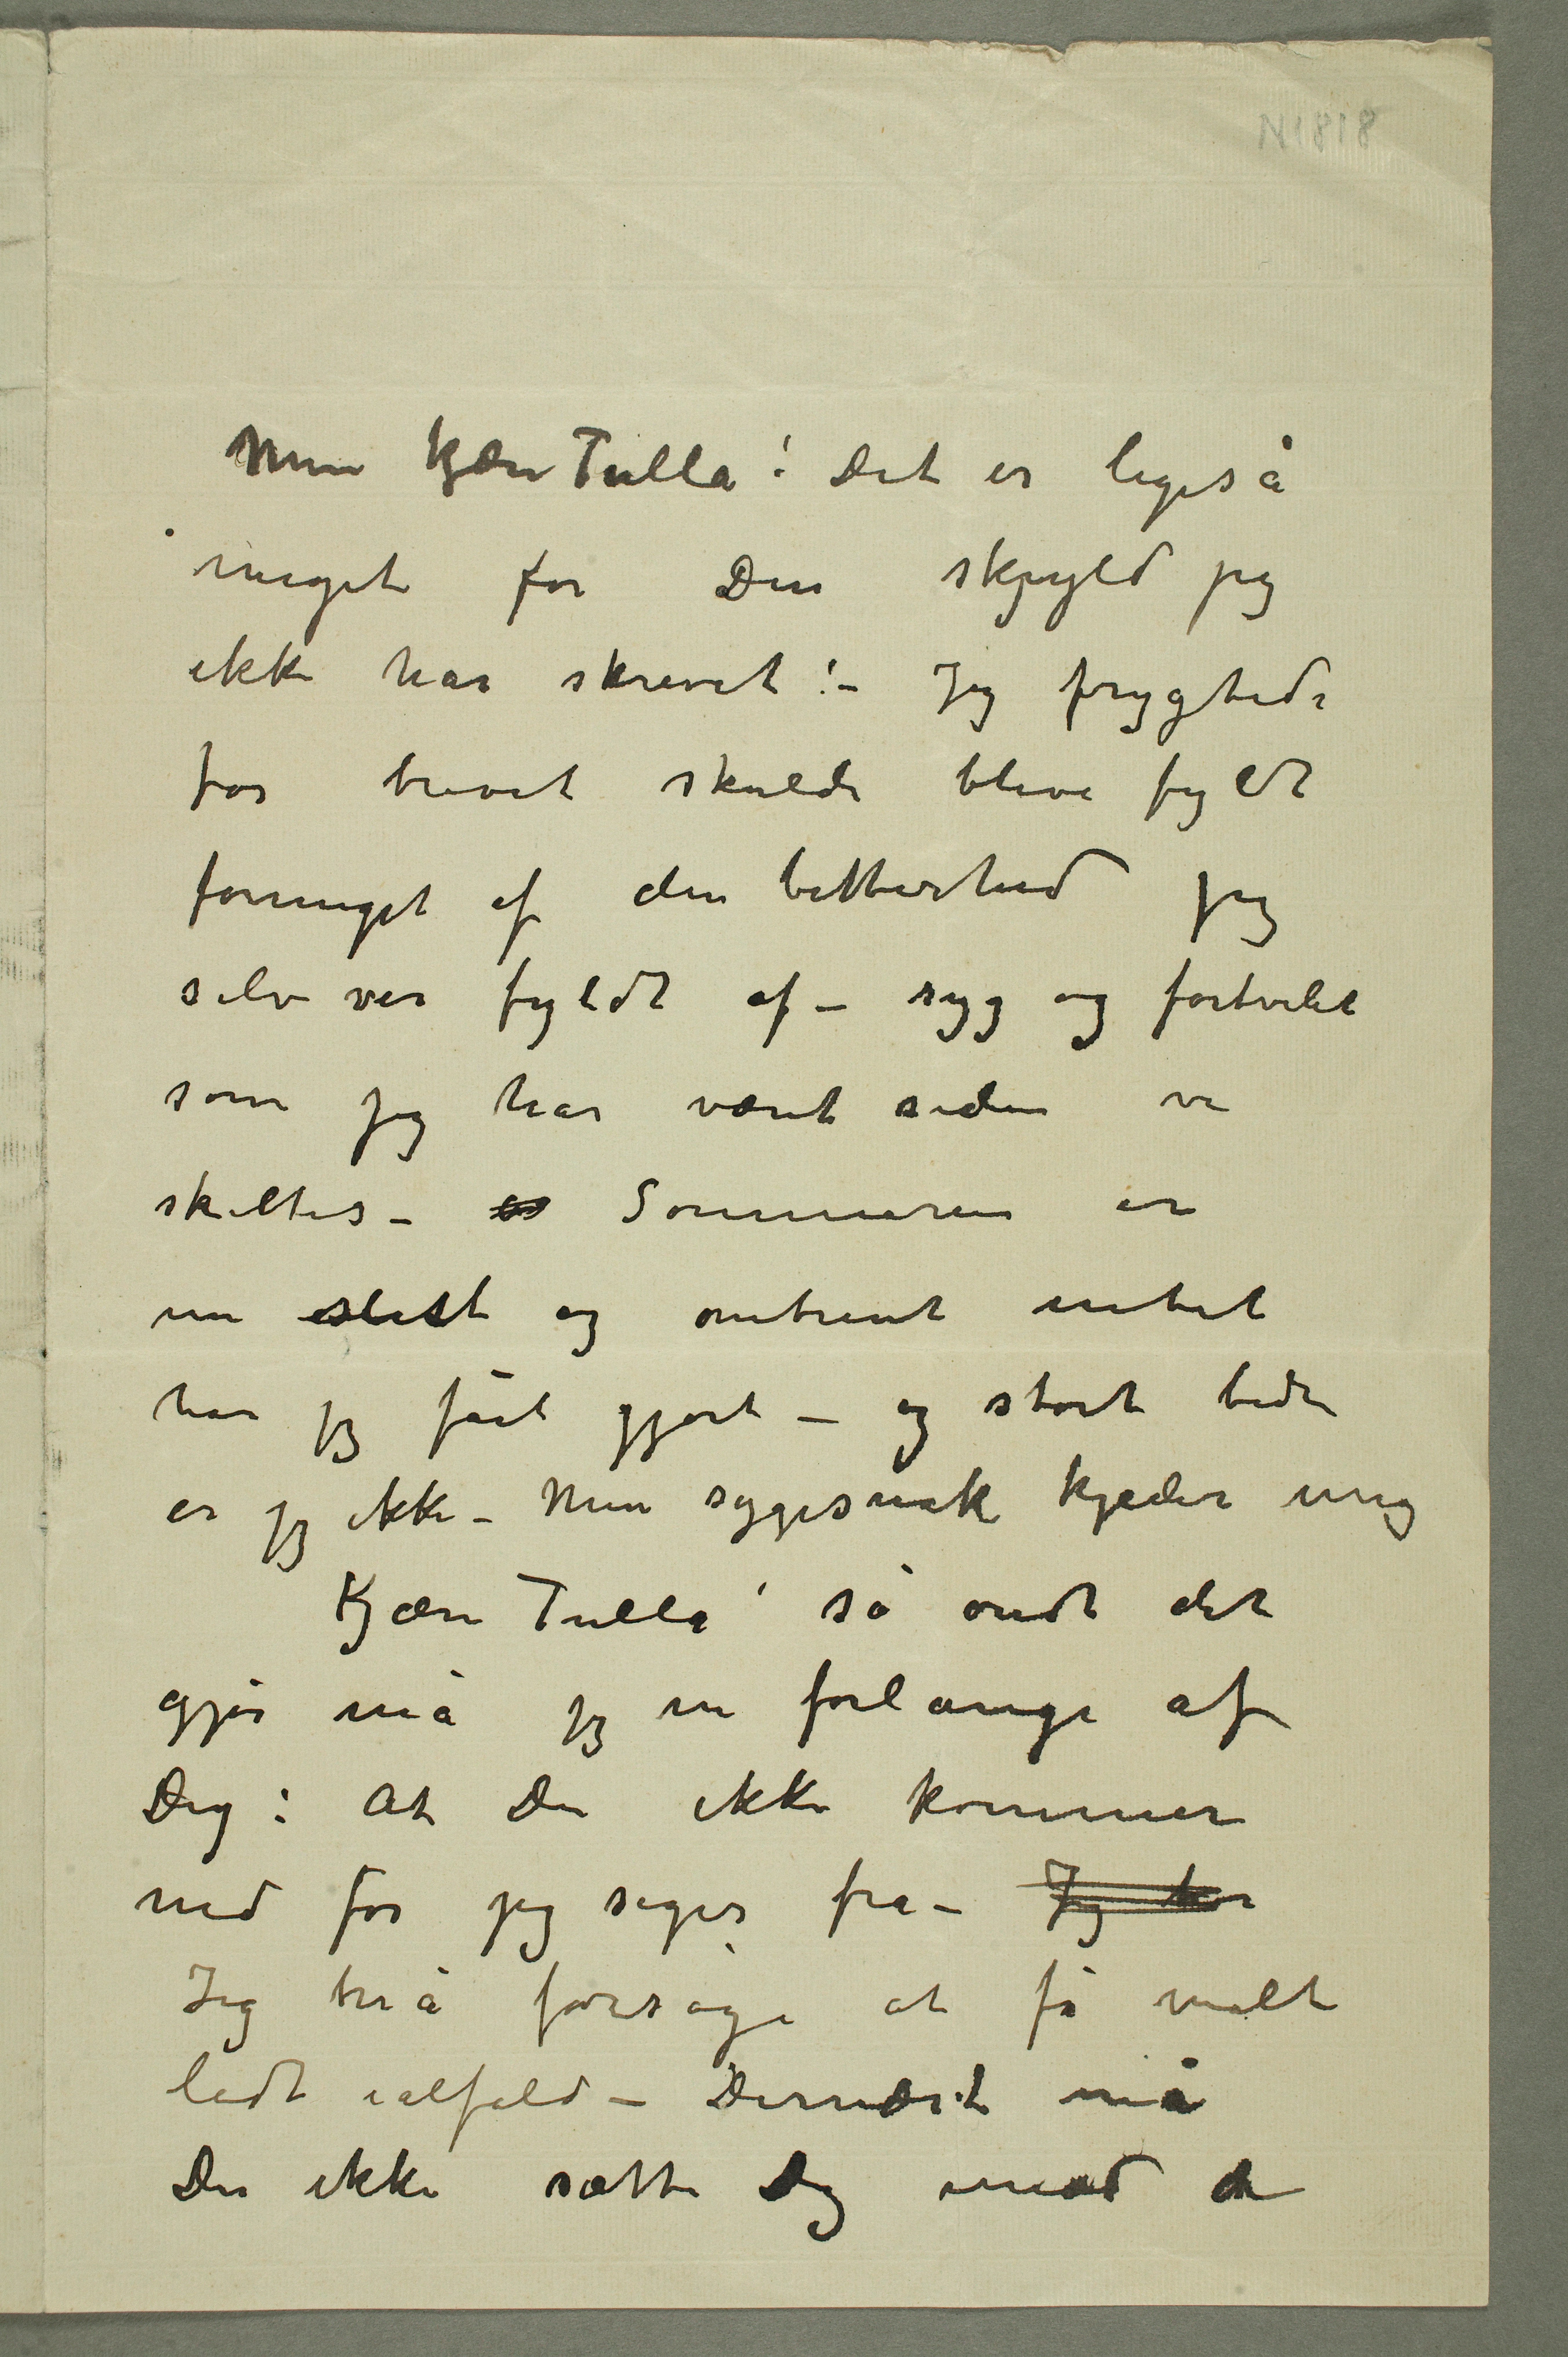 N1818
Min kjære Tulla! Det er ligeså
meget for Din skyyld jeg
ikke har skrevet! – Jeg frygtede
for brevet skulde blive fyldt
formeget af den bitterhed jeg
selv var fyldt af – syg og fortvilet
som jeg har været siden vi
skiltes – Sommeren er
nu slut og omtrent intet
har jeg fåt gjort – og stort bedre
er jeg ikke – Men sygesnak kjeder mig
Kjære Tulla! så ondt det
gjør må jeg nu forlange af
Dig: At Du ikke kommer
ned før jeg siger fra – Jeg
Jeg må forsøge at få malt
lidt ialfald – Dernæst må
Du ikke sætte Dig imod at